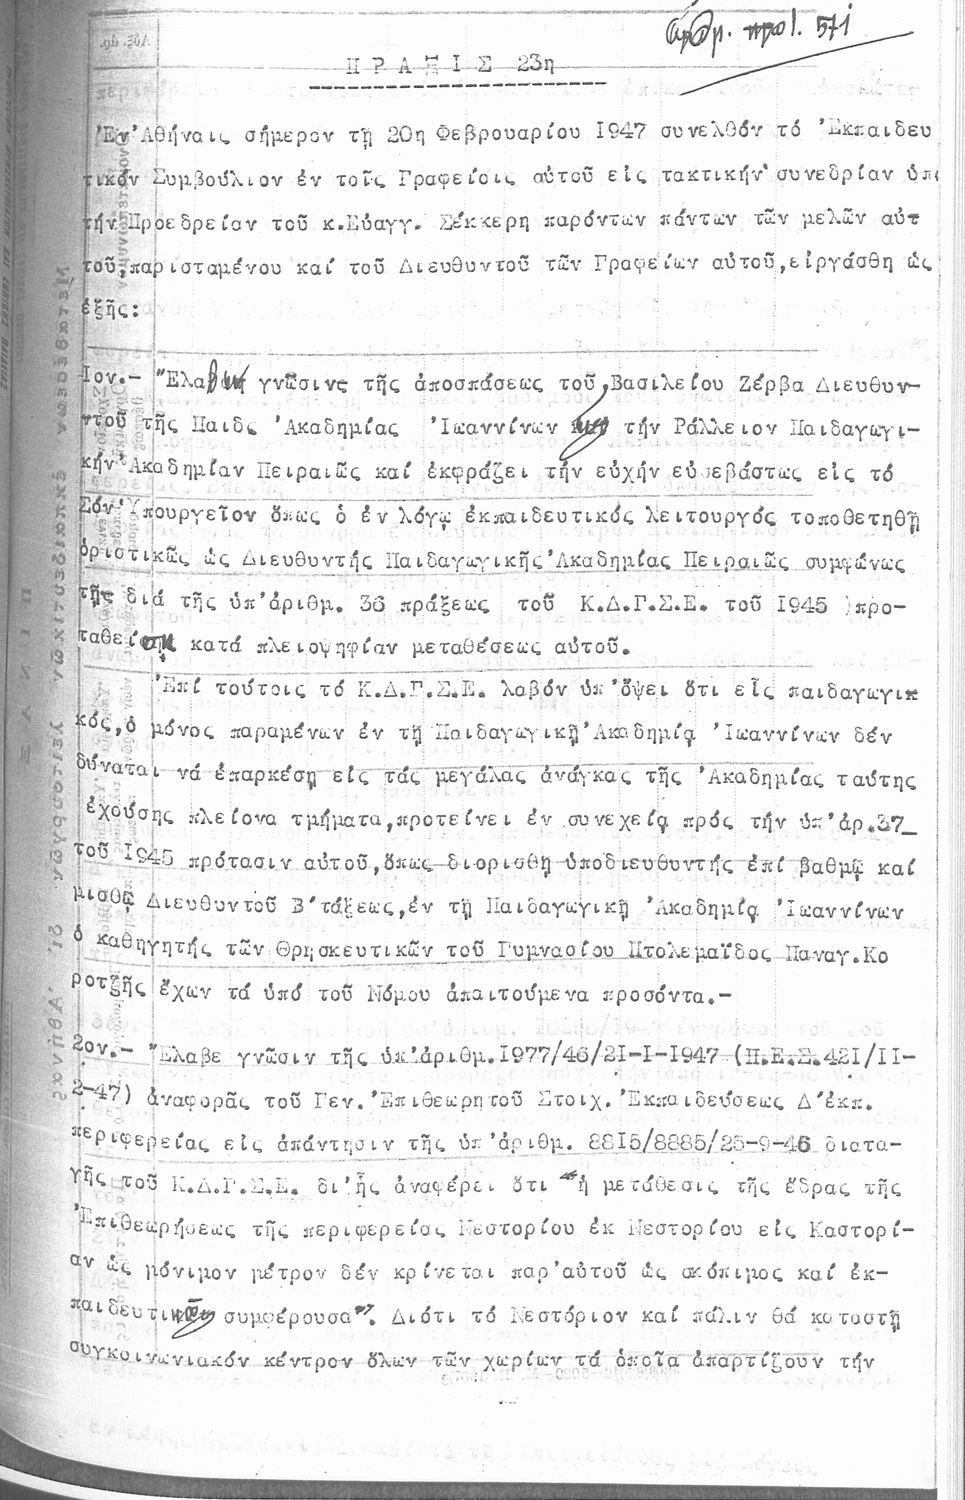 ἀριθμ. πρωτ. 571
Π Ρ Α Ξ Ι Σ 23η
Ἐν Ἀθήναις σήμερον τῇ 20η Φεβρουαρίου 1947 συνελθόν τό Ἐκπαιδευ
τικόν Συμβούλιον ἐν τοῖς Γραφείοις αὐτοῦ εἰς τακτικήν συνεδρίαν ὑπό
τήν Προεδρείαν τοῦ κ.Εὐαγγ. Σέκκερη παρόντων πάντων τῶν μελῶν αὐτ
τοῦ,παρισταμένου καί τοῦ Διευθυντοῦ τῶν Γραφείων αὐτοῦ,εἰργάσθη ὡς
ἑξῆς:
Ιον.- Ἔλαβε γνῶσιν τῆς ἀποσπάσεως τοῦ Βασιλείου Ζέρβα Διευθυν-
ντοῦ τῆς Παιδ. Ἀκαδημίας Ἰωαννίνων τήν Ράλλειον Παιδαγωγι-
κήν Ἀκαδημίαν Πειραιῶς καί ἐκφράζει τήν εὐχήν εὐσεβάστως εἰς τό
Σόν Ὑπουργεῖον ὅπως ὁ ἐν λόγῳ ἐκπαιδευτικός λειτουργός τοποθετηθῇ
ὁριστικῶς ὡς Διευθυντής Παιδαγωγικῆς Ἀκαδημίας Πειραιῶς συμφώνως
τῆς διά τῆς ὑπ'ἀριθμ. 36 πράξεως τοῦ Κ.Δ.Γ.Σ.Ε. τοῦ 1945 )προ-
ταθείσης κατά πλειοψηφίαν μεταθέσεως αὐτοῦ.
Ἐπί τούτοις τό Κ.Δ.Γ.Σ.Ε. λαβόν ὑπ'ὄψει ὅτι εἷς παιδαγωγικ
κός,ὁ μόνος παραμένων ἐν τῇ Παιδαγωγικῇ Ἀκαδημίᾳ Ἰωαννίνων δέν
δύναται νά ἐπαρκέσῃ εἰς τάς μεγάλας ἀνάγκας τῆς Ἀκαδημίας ταύτης
ἐχούσης πλείονα τμήματα,προτείνει ἐν συνεχείᾳ πρός τήν ὑπ'ἀρ.37_
τοῦ 1945 πρότασιν αὐτοῦ,ὅπως διορισθῇ ὑποδιευθυντής ἐπί βαθμῷ καί
μισθῷ Διευθυντοῦ Β'τάξεως,ἐν τῇ Παιδαγωγικῇ Ἀκαδημίᾳ Ἰωαννίνων
ὁ καθηγητής τῶν Θρησκευτικῶν τοῦ Γυμνασίου Πτολεμαΐδος Παναγ.Κο
ροτζῆς ἔχων τά ὑπό τοῦ Νόμου ἀπαιτούμενα προσόντα.-
2ον.- Ἔλαβε γνῶσιν τῆς ὑπ'ἀριθμ.1977/46/21-1-1947 (Π.Ε.Σ.421/11-
2-47) ἀναφορᾶς τοῦ Γεν.Ἐπιθεωρητοῦ Στοιχ.Ἐκπαιδεύσεως Δ'ἐκπ.
περιφερείας εἰς ἀπάντησιν τῆς ὑπ'ἀριθμ. 8815/8885/25-9-46 διατα-
γῆς τοῦ Κ.Δ.Γ.Σ.Ε. δι'ἧς ἀναφέρει ὅτι "ἡ μετάθεσις τῆς ἕδρας τῆς
Ἐπιθεωρήσεως τῆς περιφερείας Νεστορίου ἐκ Νεστορίου εἰς Καστορί-
αν ὡς μόνιμον μέτρον δέν κρίνεται παρ'αὐτοῦ ὡς σκόπιμος καί ἐκ-
παιδευτικῶς συμφέρουσα". Διότι τό Νεστόριον καί πάλιν θά καταστῇ
συγκοινωνιακόν κέντρον ὅλων τῶν χωρίων τά ὁποῖα ἀπαρτίζουν τήν